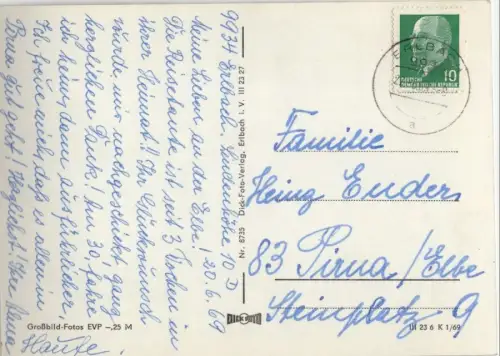 9934 Erlbach, Lindenhöhe 10 D
20.6.69
Meine Lieben an der Elbe!
Die Reisetante ist seit 3 Wochen in
ihrer Heimat! Ihr Glückwunsch
wurde mir nachgeschickt, ganz
herzlichen Dank! Am 30. fahre
ich heim, dann ausführlicher,
Ich freue mich, daß es allen in
Pirna gut geht! Ihre
Haufe.
Großbild-Fotos EVP –,25 M
Nr. 8735 Dick-Foto-Verlag, Erlbach i. V. III 23 27
DICK FOTO
DEUTSCHE
DEMOKRATISCHE REPUBLIK
10
a
Familie
Heinz Enders
83 Pirna/Elbe
Steinplatz 9
III 23 6 K 1/69